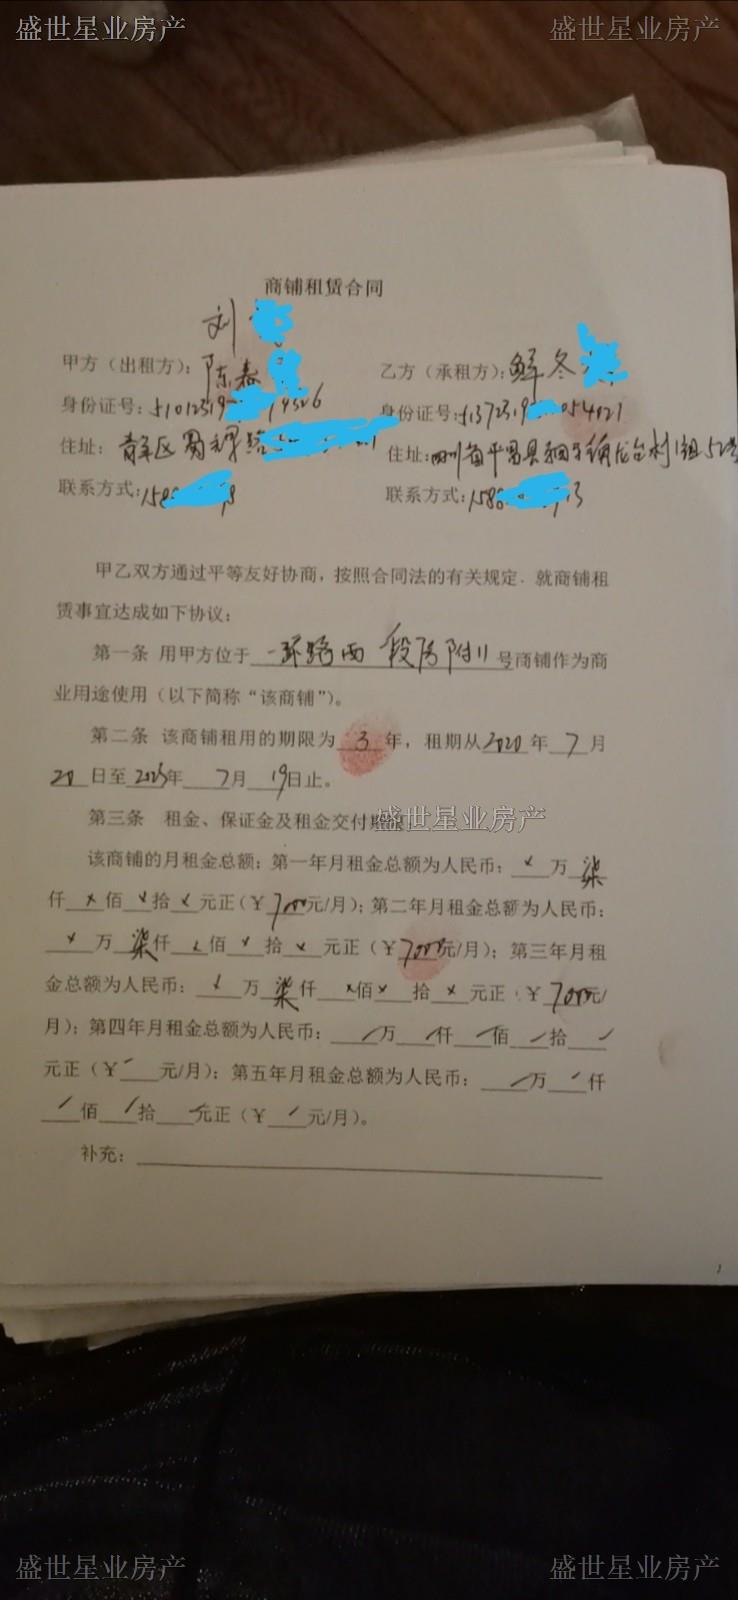 盛世星业房产 盛世星业房产
商铺租赁合同
刘
甲方（出租方）：陈春 乙方（承租方）：鲜冬
身份证号： 身份证号：
住址：青羊区 住址：四川省平昌县
联系方式：158 联系方式：158
甲乙双方通过平等友好协商，按照合同法的有关规定．就商铺租
赁事宜达成如下协议：
第一条 用甲方位于一环路西 段 附11号商铺作为商
业用途使用（以下简称“该商铺”）。
第二条 该商铺租用的期限为3年，租期从2020年7月
20日至2023年7月19日止。
第三条 租金、保证金及租金交付期限
盛世星业房产
该商铺的月租金总额：第一年月租金总额为人民币：×万柒
仟×佰×拾×元正（￥7000元/月）；第二年月租金总额为人民币：
×万柒仟×佰×拾×元正（￥7000元/月）；第三年月租
金总额为人民币：×万柒仟×佰×拾×元正（￥7000元/
月）；第四年月租金总额为人民币：/万/仟/佰/拾/
元正（￥/元/月）；第五年月租金总额为人民币：/万/仟
/佰/拾/元正（￥/元/月）。
补充：
1
盛世星业房产 盛世星业房产